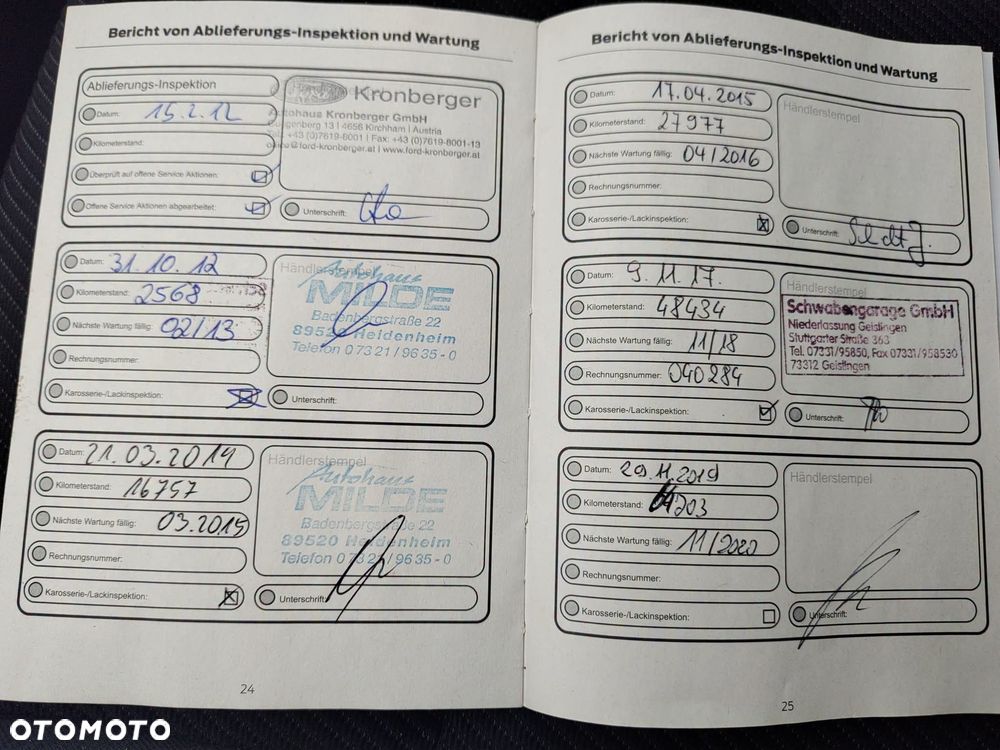 Bericht von Ablieferungs-Inspektion und Wartung
Ablieferungs-Inspektion
Datum: 15.2.12
Kilometerstand:
Überprüft auf offene Service Aktionen:
Offene Service Aktionen abgearbeitet:
Kronberger
Autohaus Kronberger GmbH
13 | 4656 Kirchham | Austria
Tel. +43 (0)7619-8001 | Fax: +43 (0)7619-8001-13
office@ford-kronberger.at | www.ford-kronberger.at
Unterschrift:
Datum: 31.10.12
Kilometerstand: 2568
Nächste Wartung fällig: 02/13
Rechnungsnummer:
Karosserie-/Lackinspektion:
Händlerstempel
Autohaus
MILDE
Badenbergstraße 22
89520 Heidenheim
Telefon 0 73 21 / 96 35 - 0
Unterschrift:
Datum: 21.03.2014
Kilometerstand: 16757
Nächste Wartung fällig: 03.2015
Rechnungsnummer:
Karosserie-/Lackinspektion:
Händlerstempel
Autohaus
MILDE
Badenbergstraße 22
89520 Heidenheim
Telefon 0 73 21 / 96 35 - 0
Unterschrift:
24
Bericht von Ablieferungs-Inspektion und Wartung
Datum: 17.04.2015
Kilometerstand: 27977
Nächste Wartung fällig: 04/2016
Rechnungsnummer:
Karosserie-/Lackinspektion:
Händlerstempel
Unterschrift:
Datum: 9.11.17.
Kilometerstand: 48434
Nächste Wartung fällig: 11/18
Rechnungsnummer: 040284
Karosserie-/Lackinspektion:
Händlerstempel
Schwabengarage GmbH
Niederlassung Geislingen
Stuttgarter Straße 363
Tel. 07331/95850, Fax 07331/958530
73312 Geislingen
Unterschrift:
Datum: 29.11.2019
Kilometerstand:
Nächste Wartung fällig: 11/2020
Rechnungsnummer:
Karosserie-/Lackinspektion:
Händlerstempel
Unterschrift:
25
OTOMOTO